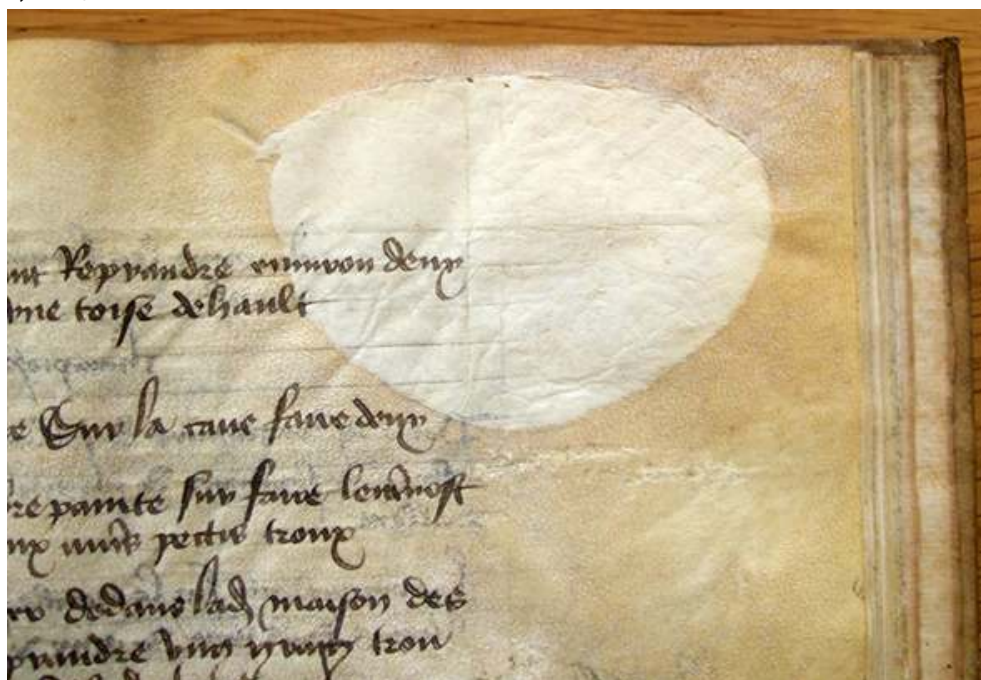 nt Reprandre environ deux
une toise de hault
e Sur la cave faire deux
re painte sur faire
ux petis troux
dedans lad maison des
prandre ung grant trou